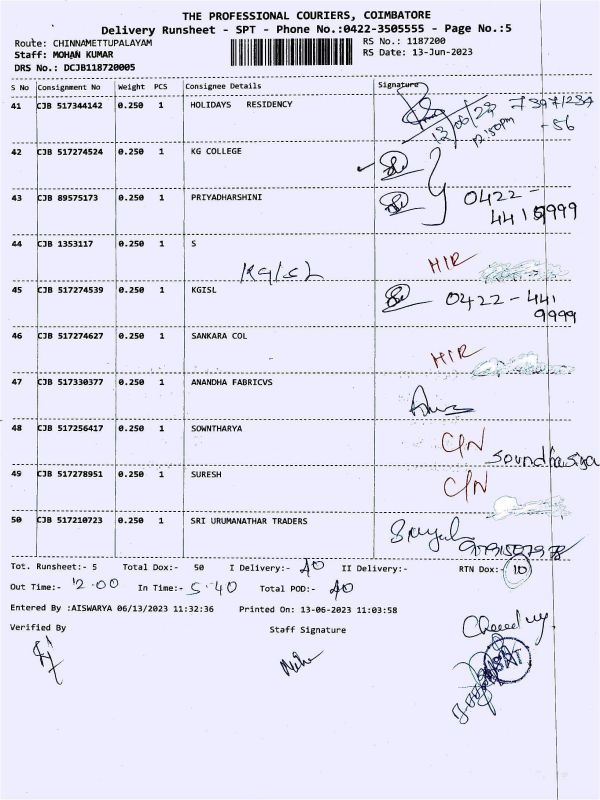 THE PROFESSIONAL COURIERS, COIMBATORE
Delivery Runsheet - SPT - Phone No.:0422-3505555 - Page No.:5
Route: CHINNAMETTUPALAYAM RS No.: 1187200
Staff: MOHAN KUMAR RS Date: 13-Jun-2023
DRS No.: DCJB118720005
S No Consignment No Weight PCS Consignee Details Signature
41 CJB 517344142 0.250 1 HOLIDAYS RESIDENCY
13/06/23
12:50pm
-56
42 CJB 517274524 0.250 1 KG COLLEGE
43 CJB 89575173 0.250 1 PRIYADHARSHINI 0422-
44 CJB 1353117 0.250 1 S
KGISL
45 CJB 517274539 0.250 1 KGISL 0422-441
9999
46 CJB 517274627 0.250 1 SANKARA COL
47 CJB 517330377 0.250 1 ANANDHA FABRICVS
48 CJB 517256417 0.250 1 SOWNTHARYA C/N
49 CJB 517278951 0.250 1 SURESH C/N
50 CJB 517210723 0.250 1 SRI URUMANATHAR TRADERS
Tot. Runsheet:- 5 Total Dox:- 50 I Delivery:- 40 II Delivery:- RTN Dox:- 10
Out Time:- 12.00 In Time:- 5.40 Total POD:- 40
Entered By :AISWARYA 06/13/2023 11:32:36 Printed On: 13-06-2023 11:03:58
Verified By Staff Signature